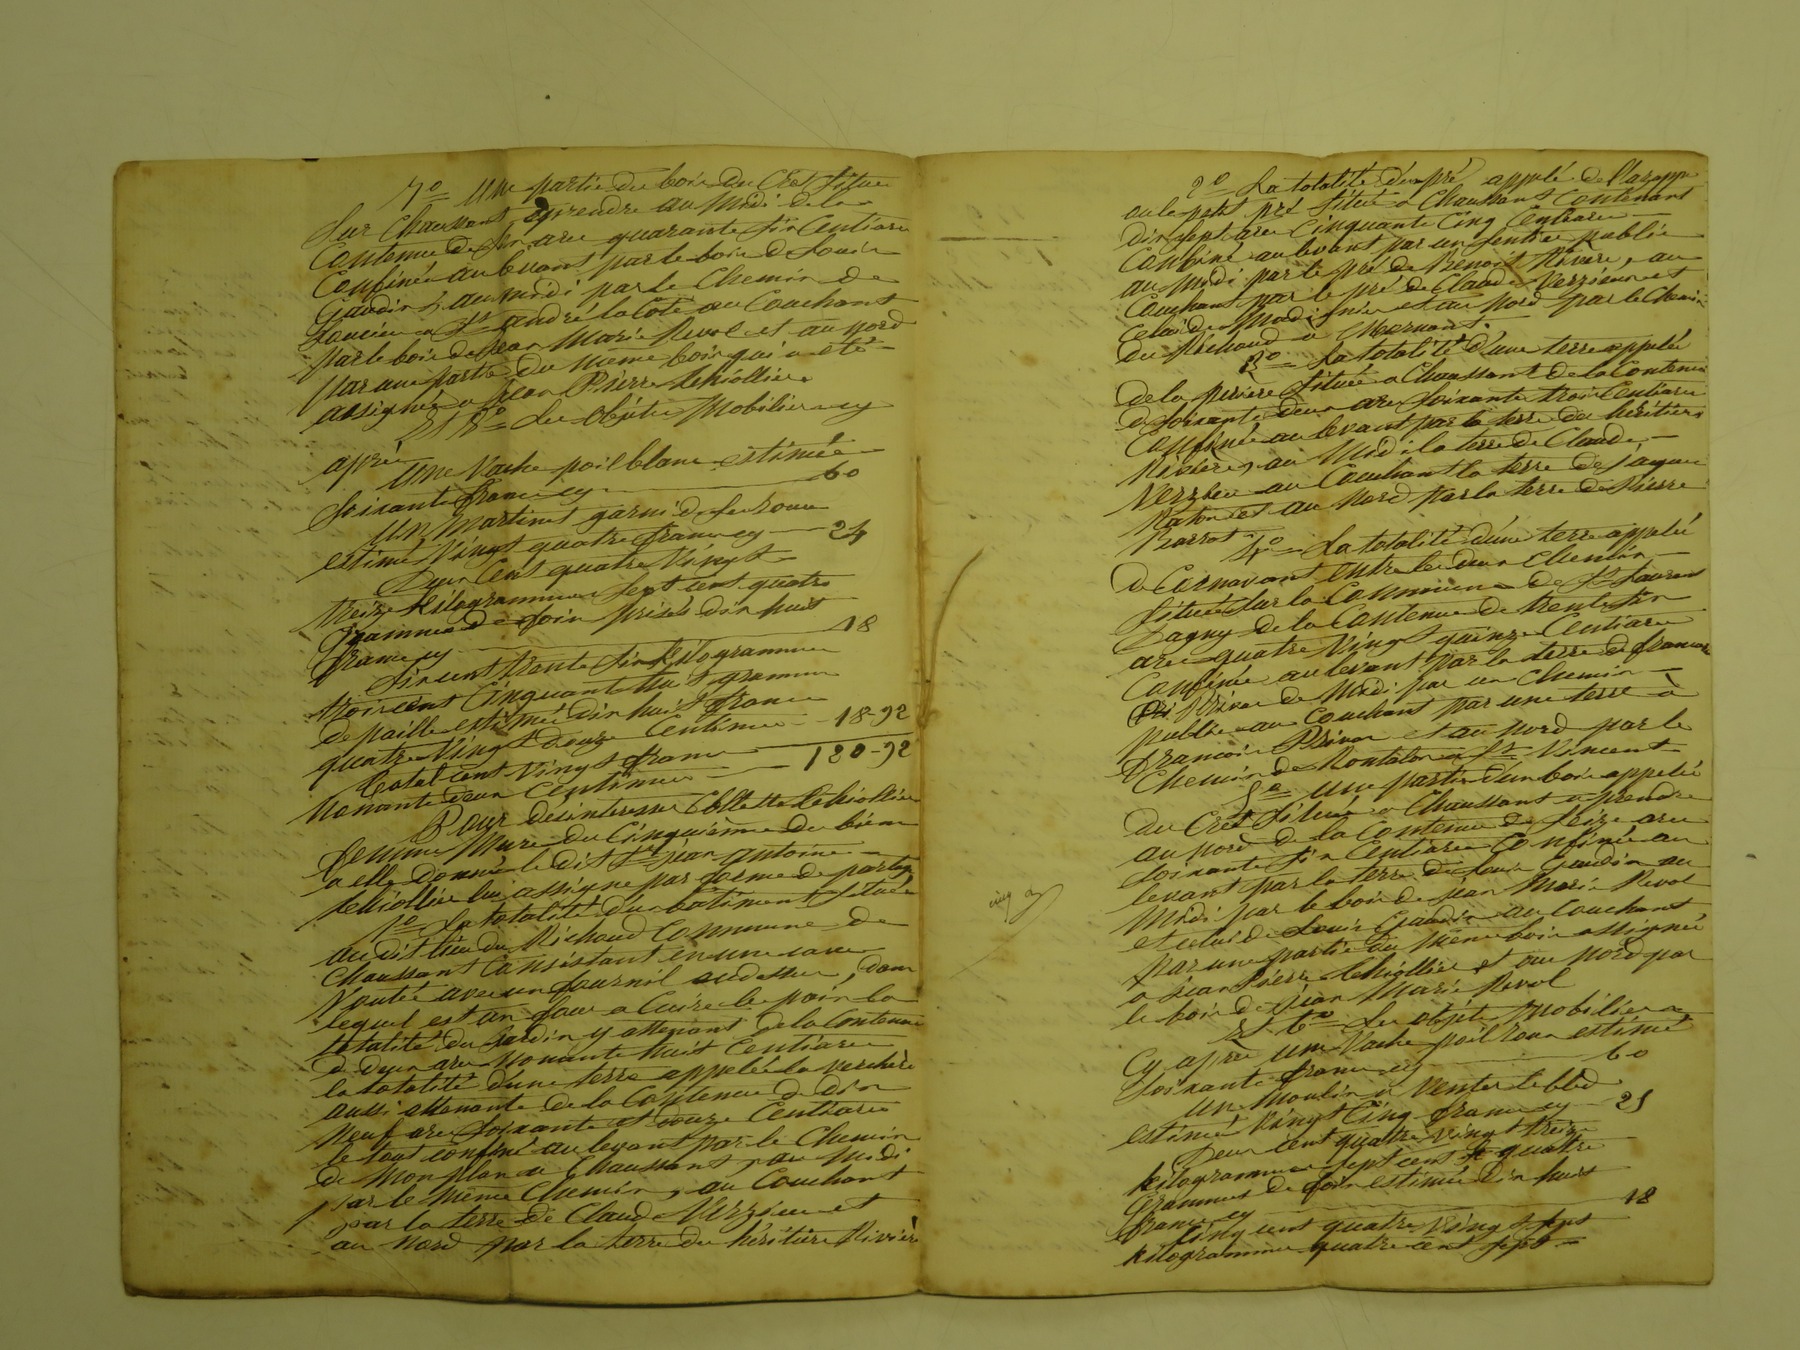 7º Une partie du bois du Cret situé
sur Chaussant a prendre au Midi de la
Contenue de six are quarante six Centiare
Confinée au levant par le bois de Louis
Gaudin, au midi par le Chemin de
a St andré la Cote au Couchant
par le bois de Jean Marie Revol et au nord
par une partie du meme bois qui a été
assignée a Jean Pierre
Et 8º Les objets Mobilier cy
après
Une Vache poil blanc estimée
soixante franc cy 60
Un Martinet garni de ses roues
estimé Vingt quatre franc cy 24
Deux Cent quatre Vingt
treize Kilogramme sept cent quatre
Gramme de foin prisés dix huit
franc cy 18
Six cent trente six Kilogramme
trois cent Cinquante huit gramme
de paille estimée dix huit franc
quatre Vingt douze Centime 18-92
total cent Vingt franc 120-92
Nonante deux Centime
Pour desinteresser Collette
femme Mure du Cinquième du bien
a elle donné le dit Sr jean antoine
lui assigne par forme de partage
1º La totalité d'un batiment situé
au dit lieu du Richoud Commune de
Chaussant Consistant en une cave
Voutée avec un fournil au dessus, dans
lequel est un four a Cuire le pain la
totalité du Jardin y attenant de la Contenue
de deux are Nonante huit Centiare
la totalité d'une terre appelé la verchère
aussi attenante de la Contenue de dix
Neuf are soixante et onze Centiare
le tout confiné au levant par le Chemin
de Monplan a Chaussant, au Midi
par le même Chemin, au Couchant
par la terre de Claude Verzieu et
au Nord par la terre du héritière Rivière
2º La totalité d'un pré appelé de
ou le petit pré situé a Chaussant Contenant
dix sept are Cinquante Cinq Centiare
Confiné au levant par un sentier public
au Midi par le pré de Benoit Rivere, au
Couchant par le pré de Claude Verzieux et
Celui de et au Nord par le Chemin
du Richoud a Mornant.
3º La totalité d'une terre appelé
de la periere située a Chaussant de la Contenue
de soixante deux are soixante trois Centiare
Confinée au levant par la terre du héritiers
Riviere, au Midi la terre de Claude
Verzieu au Couchant la terre de jaque
Raton et au Nord par la terre de Pierre
4º La totalité d'une terre appelé
de Cornavant entre les deux Chemin
située sur la Commune de St Laurent
Dagny de la Contenue de trente six
are quatre Vingt quinze Centiare
Confinée au levant par la terre de francois
de Midi par un Chemin
public au Couchant par une terre à
francois et au Nord par le
Chemin de Montalon a St Vincent
5º Une partie d'un bois appelé
du Cret situé a Chaussant a prendre
au nord de la Contenue de Seize are
soixante six Centiare Confinée au
levant par la terre de Louis Gaudin au
Midi par le bois de jean Marie Revol
et celui de Louis Gaudin au Couchant
par une partie du meme bois assignée
a jean Pierre et au Nord par
le bois de jean Marie Revol
Et 6º Les objets Mobilier
Cy apres une Vache poil roux estimé
soixante franc cy 60
Un Moulin a Venter le bled
estimé Vingt Cinq franc cy 25
Deux cent quatre Vingt treize
kilogramme sept cent quatre
Grammes de foin estimée dix huit
franc cy 18
Cinq cent quatre Vingt sept
kilogramme quatre cent sept